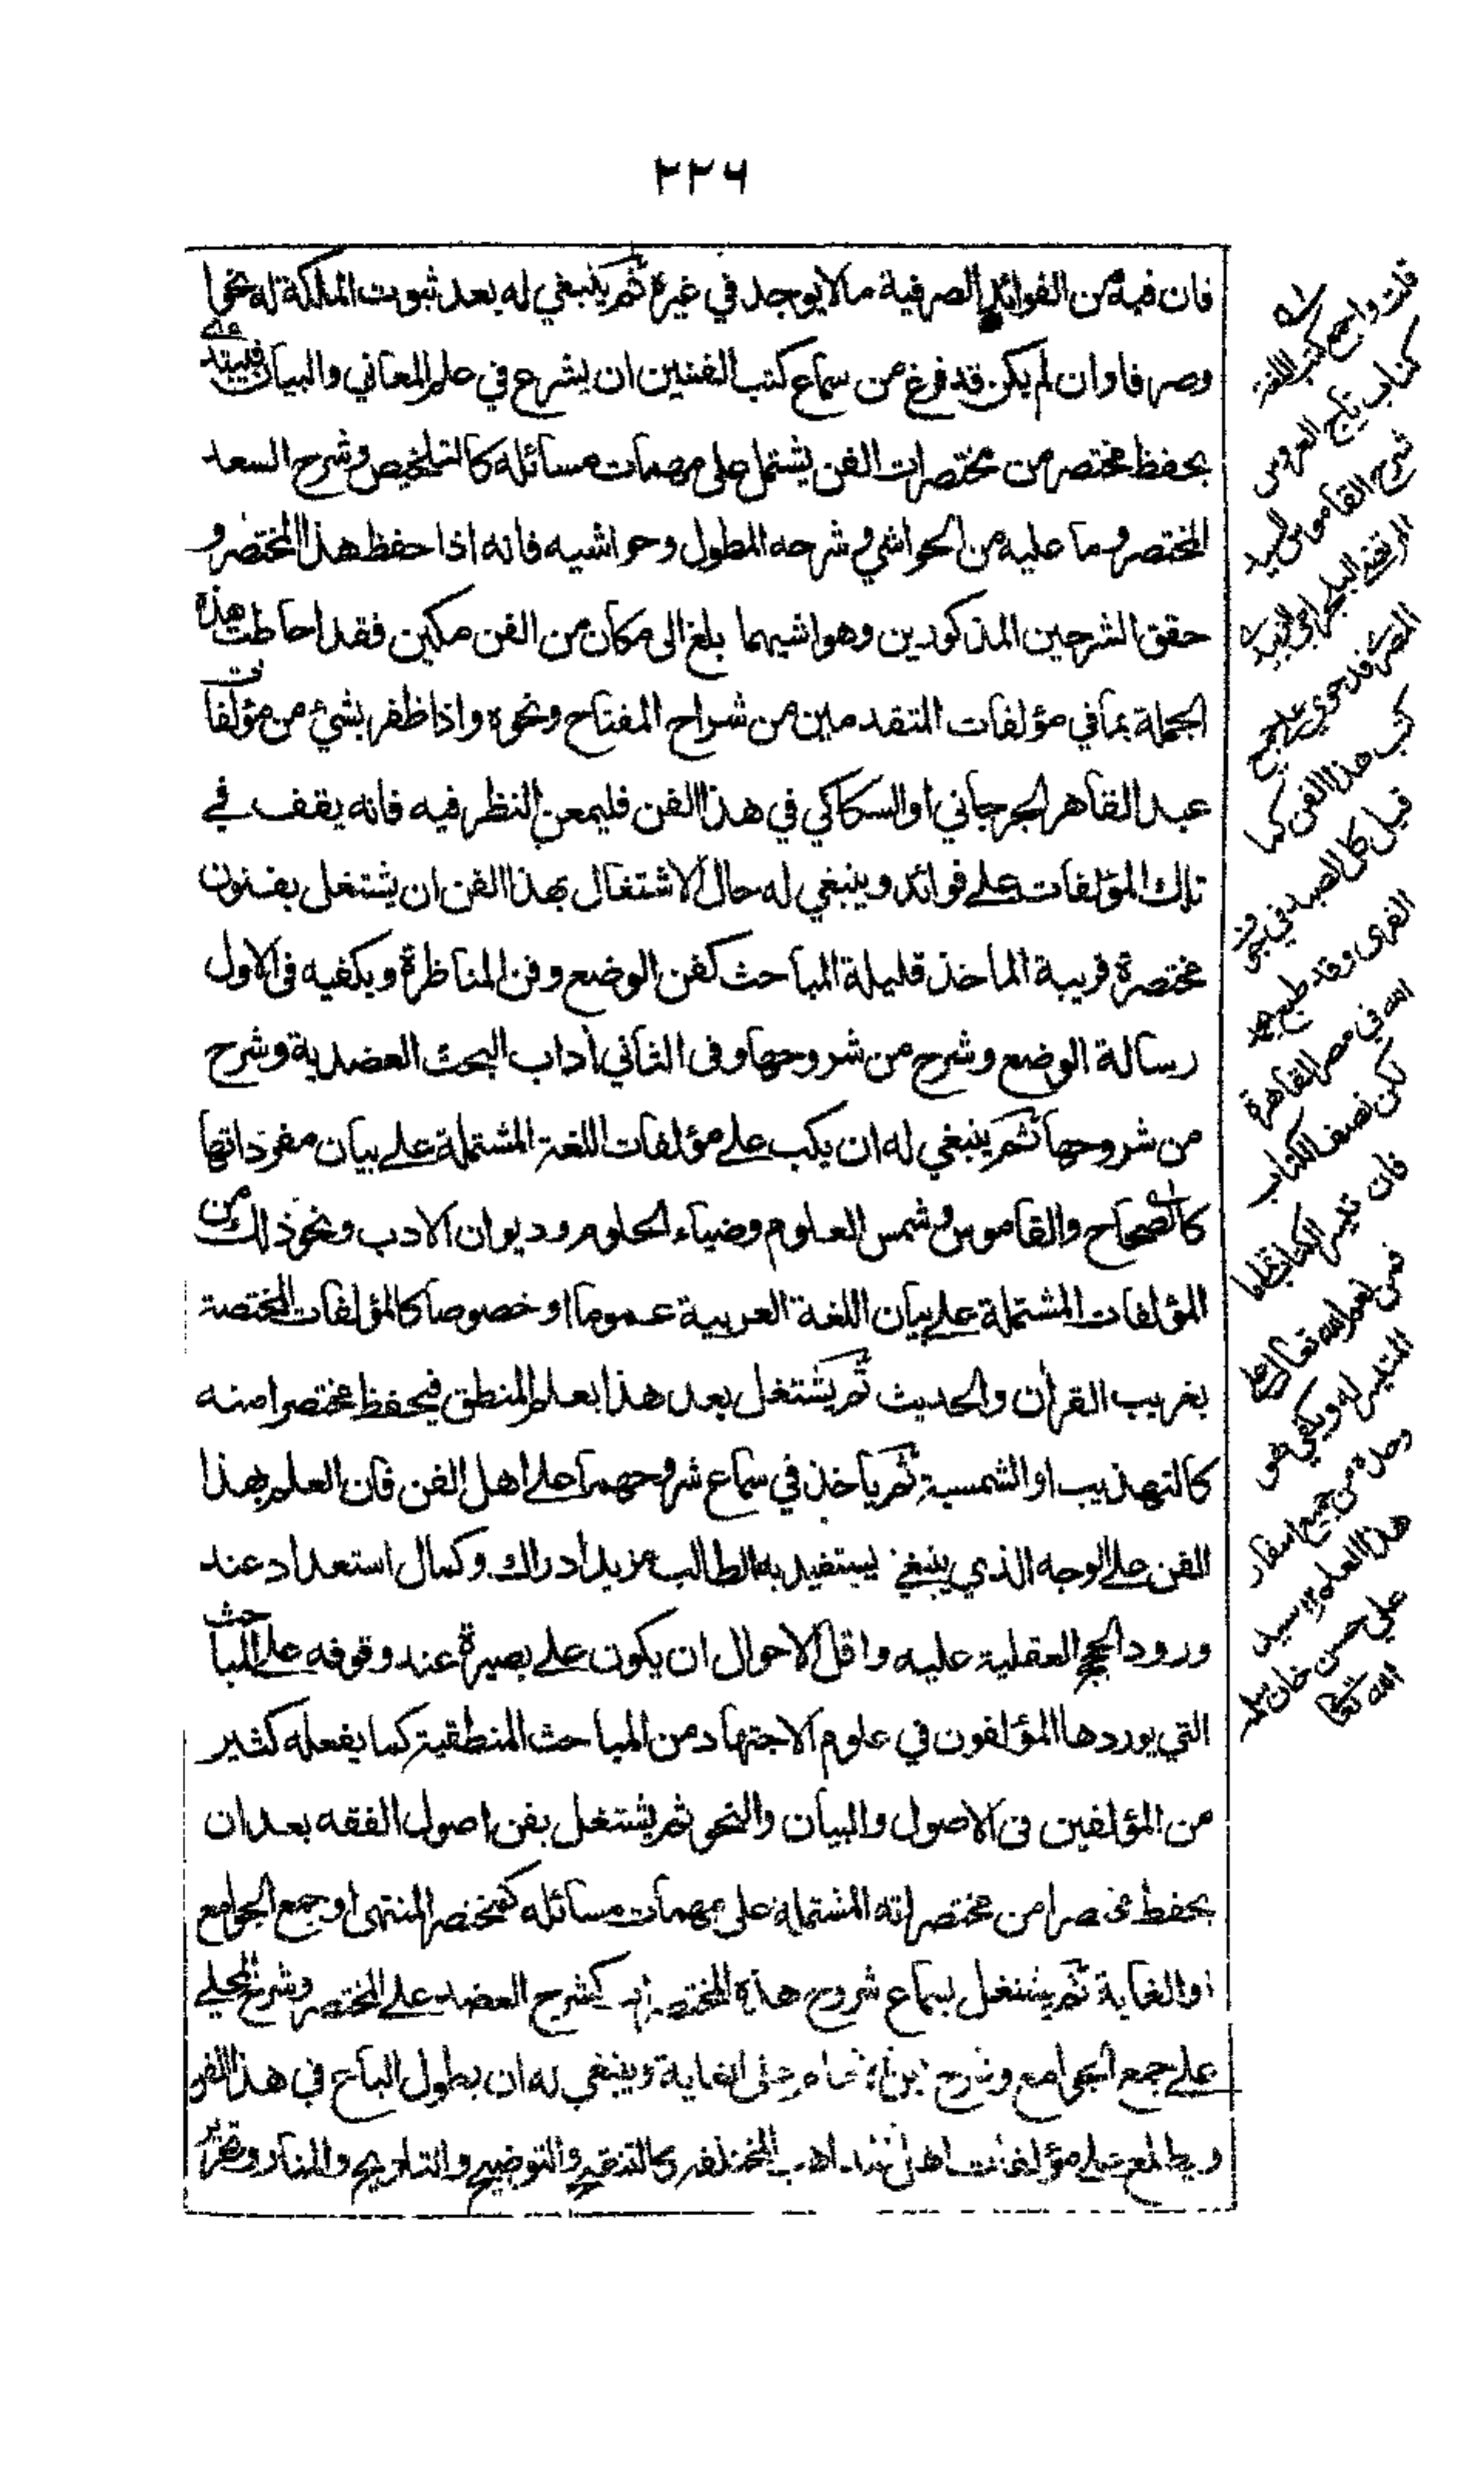 ٢٢٦
فان فيه من الفوائد الصرفية مالايوجد في غيره ثم ينبغي له بعد ثبوت الملكة له نحوا
وصرفا وان لم يكن قد فرغ من سماع كتب الفنين ان يشرع في علم المعاني والبيان فليبتدء
بحفظ مختصر من مختصرات الفن يشتمل على مهمات مسائله كالتلخيص وشرح السعد
المختصر وما عليه من الحواشي وشرحه المطول وحواشيه فانه اذا حفظ هذا المختصر و
حقق الشرحين المذكورين وهواشيهما بلغ الى مكان من الفن مكين فقد احاطت هذه
الجملة بما في مؤلفات المتقدمين من شراح المفتاح ونحوه واذا ظفر بشئ من مؤلفات
عبد القاهر الجرجاني او السكاكي في هذا الفن فليمعن النظر فيه فانه يقف في
تلك المؤلفات على فوائد وينبغي له حال الاشتغال بهذا الفن ان يشتغل بفنون
مختصرة قريبة الماخذ قليلة المباحث كفن الوضع وفن المناظرة ويكفيه في الاول
رسالة الوضع وشرح من شروحها وفي الثاني اداب البحث العضدية وشرح
من شروحها ثم ينبغي له ان يكب على مؤلفات اللغة المشتملة على بيان مفرداتها
كالصحاح والقاموس وشمس العلوم وضياء الحلوم وديوان الادب ونحو ذلك من
المؤلفات المشتملة على بيان اللغة العربية عموما او خصوصا كالمؤلفات المختصة
بغريب القران والحديث ثم يشتغل بعد هذا بعلم المنطق فيحفظ مختصرا منه
كالتهذيب او الشمسية ثم ياخذ في سماع شروحهما على اهل الفن فان العلم بهذا
الفن على الوجه الذي ينبغي يستفيد به الطالب مزيد ادراك وكمال استعداد عند
ورود الحجج العقلية عليه واقل الاحوال ان يكون على بصيرة عند وقوفه على المباحث
التي يوردها المؤلفون في علوم الاجتهاد من المباحث المنطقية كما يفعله كثير
من المؤلفين في الاصول والبيان والنحو ثم يشتغل بفن اصول الفقه بعد ان
يحفظ مختصرا من مختصراته المشتملة على مهمات مسائله كمختصر المنتهى او جمع الجوامع
او الغاية ثم يشتغل بسماع شروح هذه المختصرات كشرح العضد على المختصر وشرح المحلي
على جمع الجوامع وشرح ابن الامام على الغاية وينبغي له ان يطول الباع في هذا الفن
ويطالع على مؤلفات اهل المذاهب المختلفة كالتنقيح والتوضيح والتلويح والمنار وتحرير
كتاب تاج العروس
شرح القاموس للسيد
كتب هذا الفن كما
قيل كل الصيد في جوف
الفرى وقد طبع
الله في مصر القاهرة
لكن نصف الكتاب
فان تيسر الكتاب
هذا العلم
علي حسن خان سلمه
الله تعالى